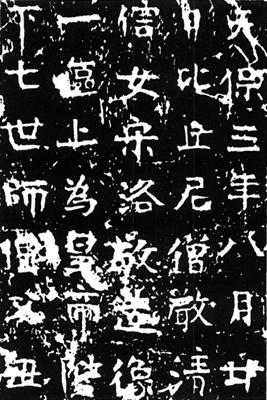 天保三年八月廿
日比丘尼僧嚴清
信女宋洛敬造像
一區上為皇帝陛
下七世師僧父母